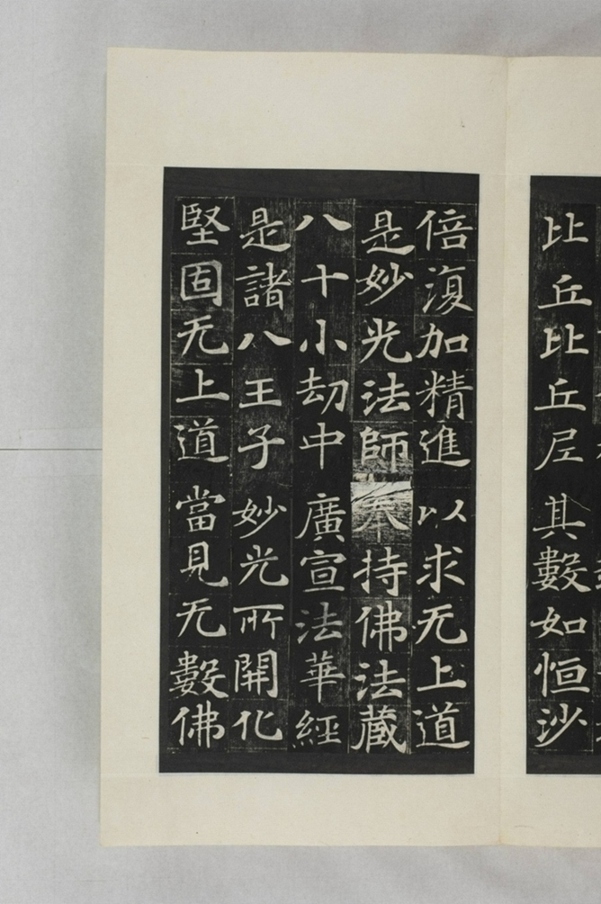 比丘比丘尼其數如恒沙
倍復加精進以求无上道
是妙光法師奉持佛法藏
八十小劫中廣宣法華經
是諸八王子妙光所開化
堅固无上道當見无數佛